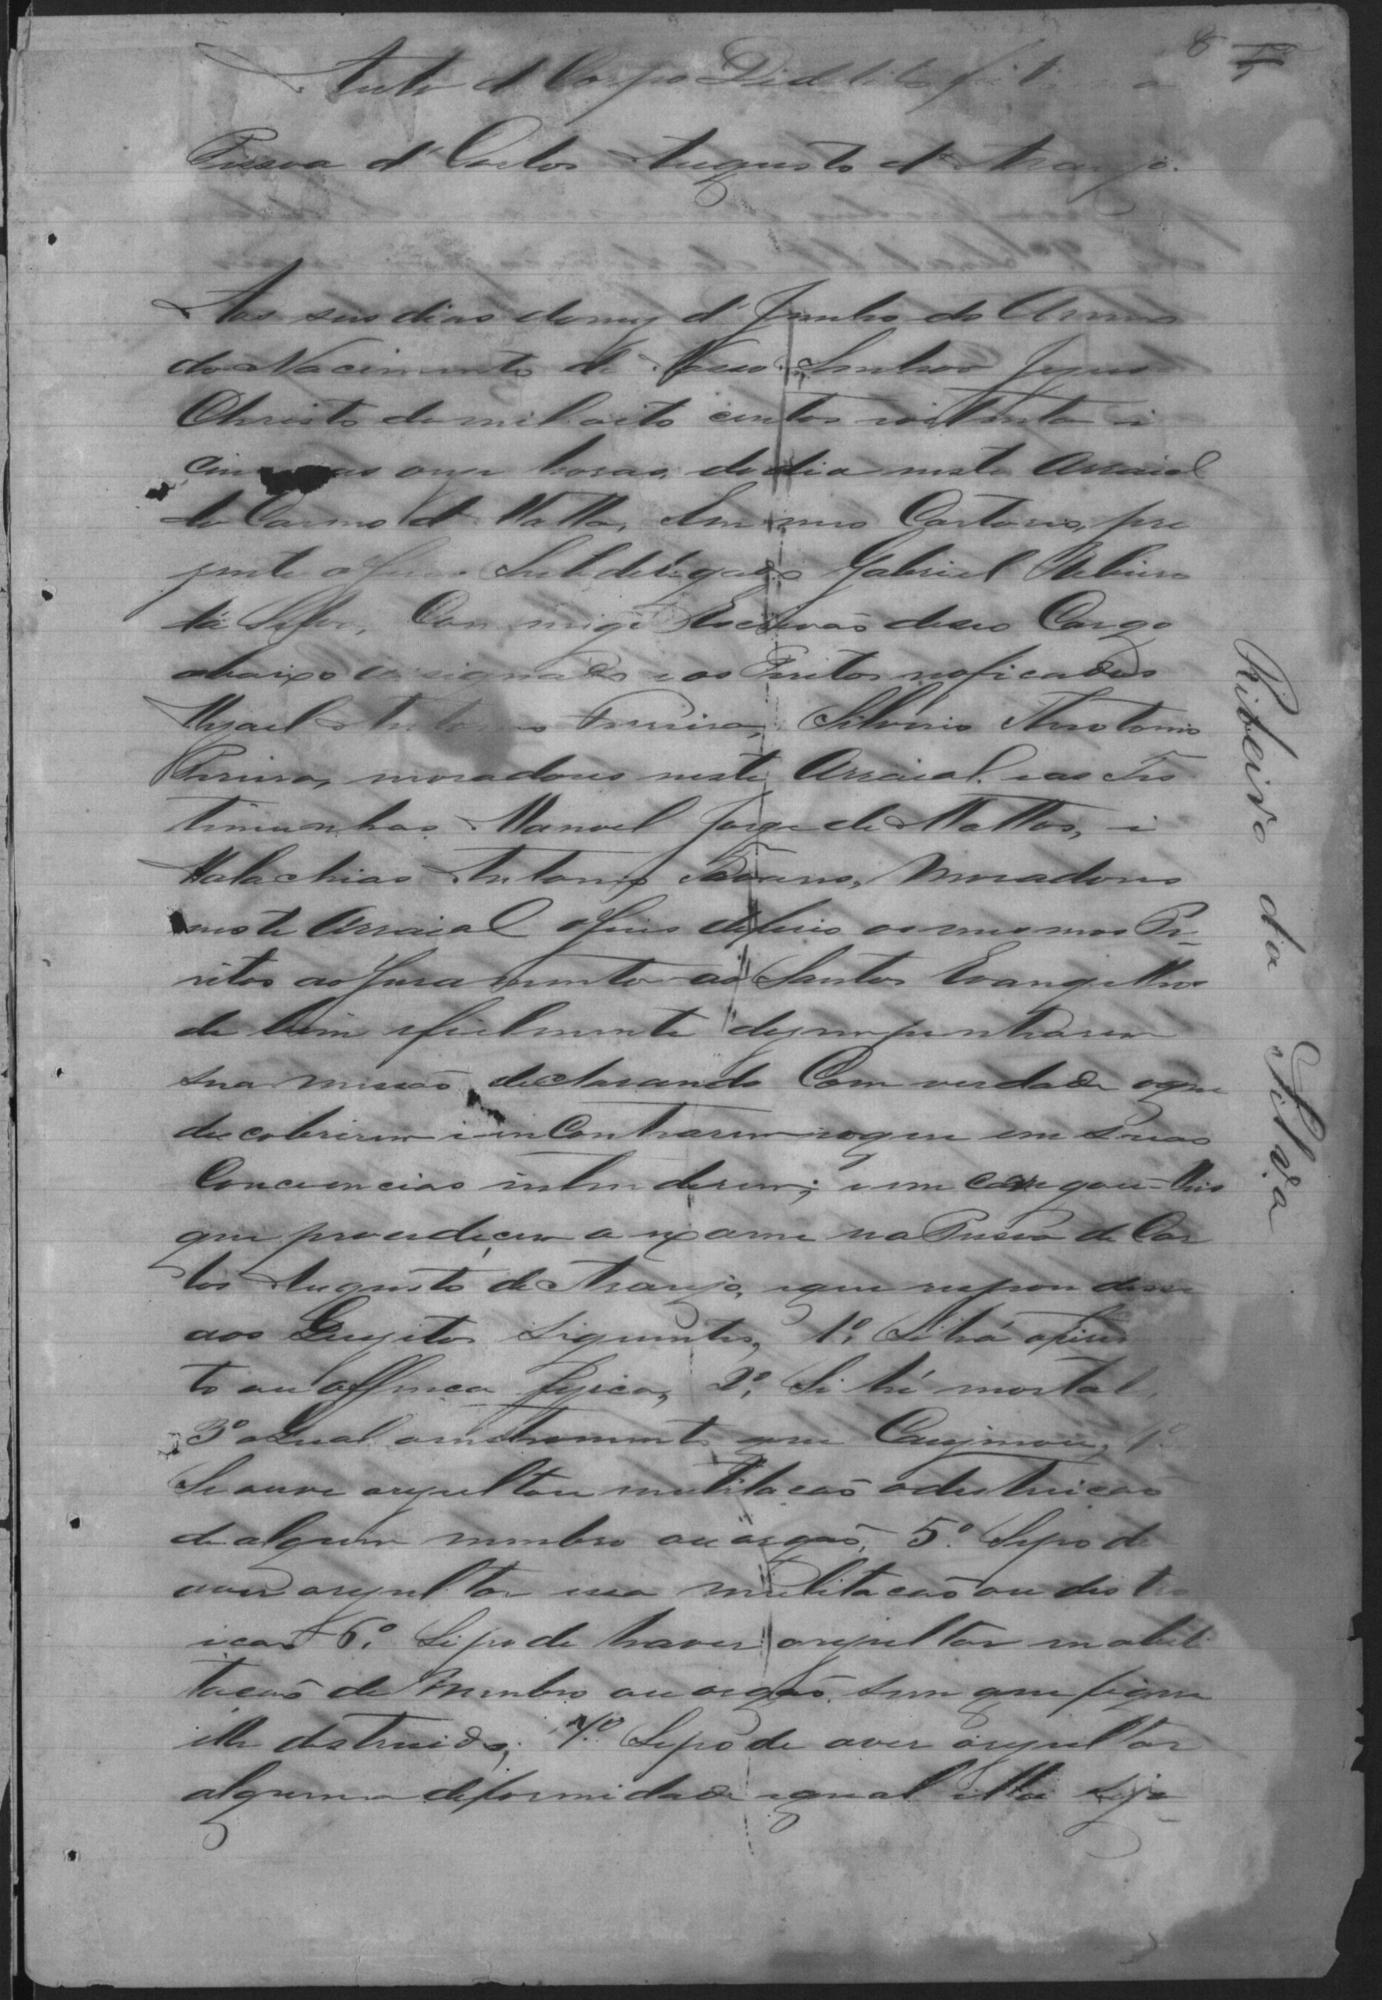 8
Auto d' Corpo Dide lito feito na
Pessoa d' Carlos Augusto d' Araujo.
Aos seis dias do mez d' Junho do Anno
do Nacimento de Nosso Senhor Jezus
Christo de mil oito centos e oitenta e
as onze horas do dia neste Arraial
do Carmo d' Matta, em meu Cartorio, pre
zente o Juis Subdelegado Gabriel Ribeiro
da Silva, Com migo Escrivão deseo Cargo
abaixo assignado e os Peritos noficados
Antonio Pereira, Silverio Antonio
Pereira, moradores neste Arraial. e as Tes
timunhas Manoel Jorge de Mattos, e
Malachias Antonio Soares, Moradores
neste Arraial o Juis deferio aos mesmos Pe-
ritos ao Juramento aos Santos Evangelhos
de bem e fielmente dezempenharem
sua missão, declarando Com verdade oque
descobrirem i emContrarem eoque em suas
Conciencias intenderem; i em carregou-lhes
que procedecem a exame na Pessoa de Car
los Augusto de Araujo, eque respondecem
aos Quezitos siguintes, 1º. Si há o feri
to ou offença fizica, 2º. Si hé mortal,
3º o Qual o instromento que Cauzmou, 4º
Se ouve orezultou mutilacão odestruicão
de algum membro ou orgão, 5º. Se pode
aver orezultar essa mutilacão ou destro
icão 6º. Se pode haver orezultar inabeli
tacão de Membro ou orgão, sem que fique
elle destruido; 7º Se pode aver orezultar
alguma deformidade equal ella seja-
Ribeiro da Silva